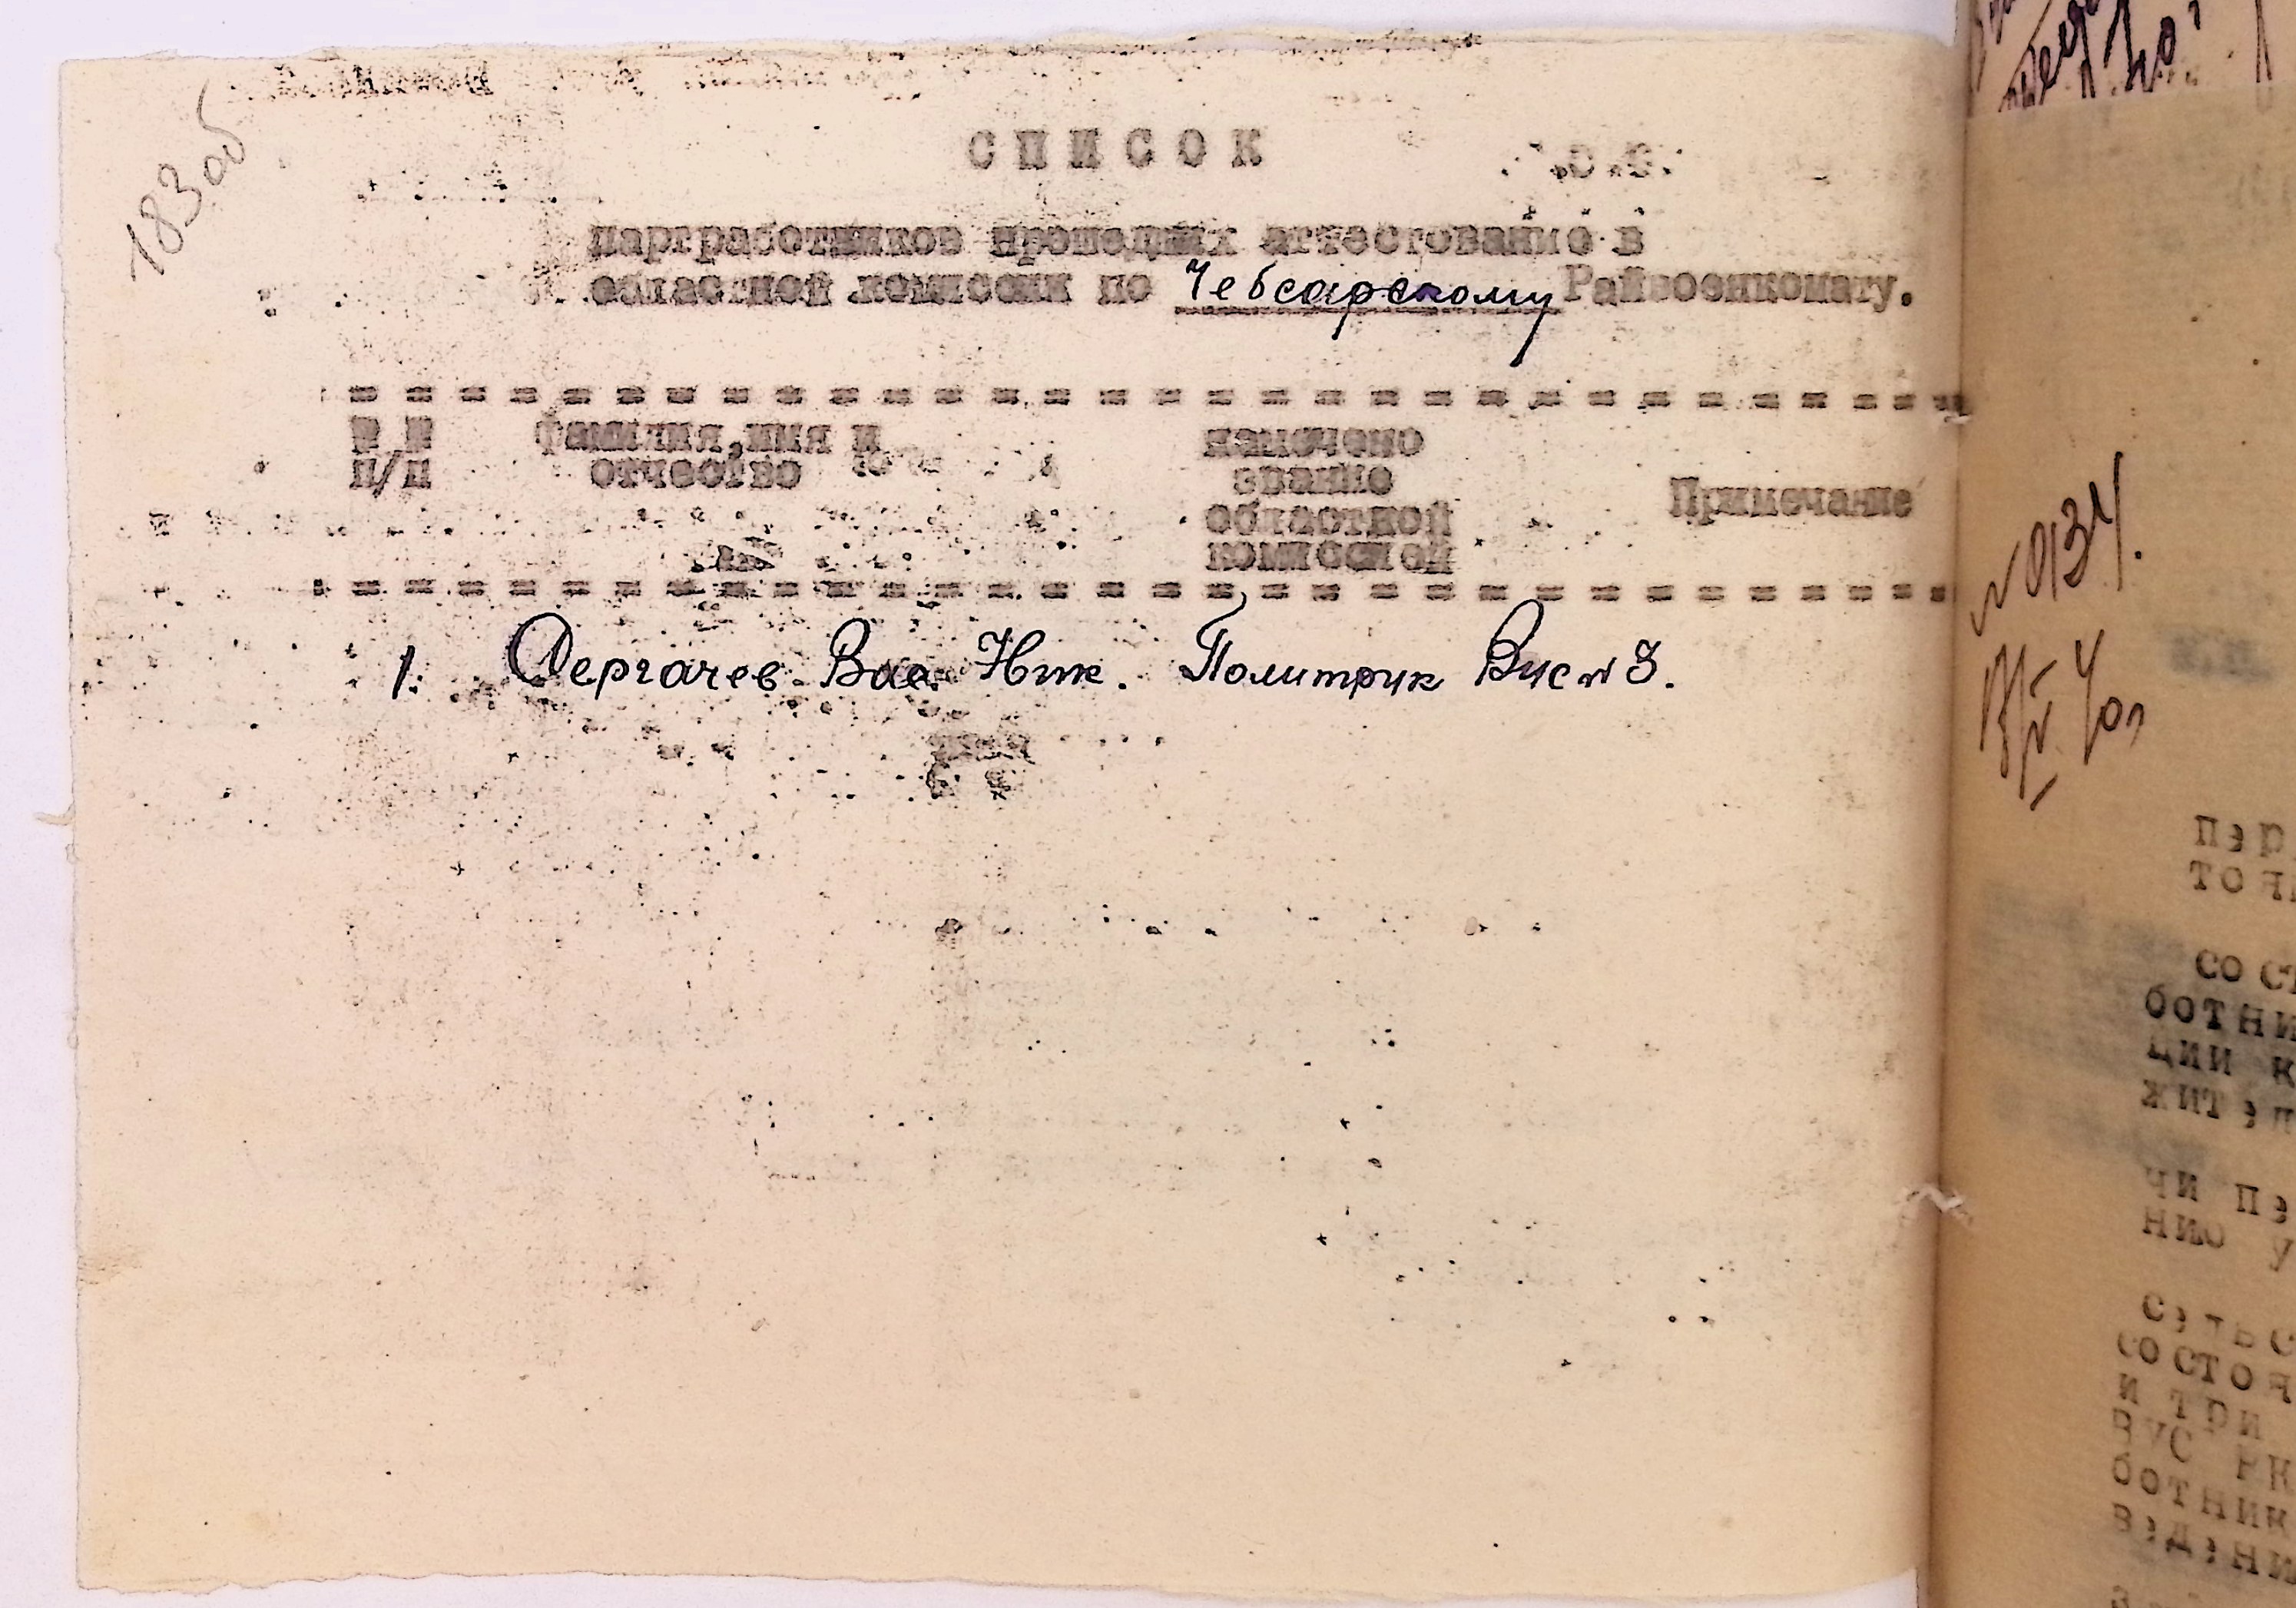 183 об
СПИСОК
партработников прошедших аттестование в
областной комиссии по Чебсарскому Райвоенкомату.
№ №
п/п
фамилия, имя и
отчество
намечено
звание
областной
комиссией
Примечание
1. Дергачев Вас. Ник. Политрук Вус № 3.
№ 0134.
пер
сос
ботни
ции к
жител
чи пе
нию у
сельс
состоя
и три
ВУС РК
ботник
ведени